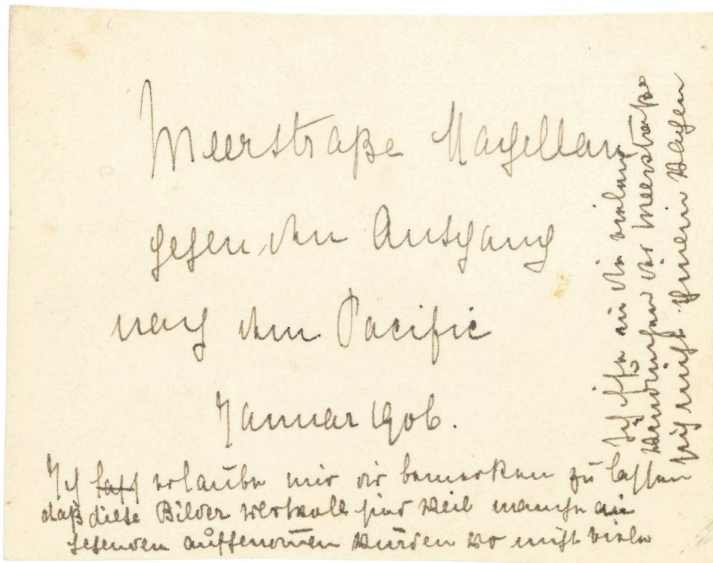 Meerstraße Magellan
gegen den Ausgang
nach dem Pacific
Januar 1906.
Ich erlaube mir dir bemerken zu lassen
daß diese Bilder wertvoll sind weil manche in
Gegenden aufgenommen wurden wo nicht viele
Schiffe in die vielen
Windungen der Meerstraße
sich nicht hinein wagen